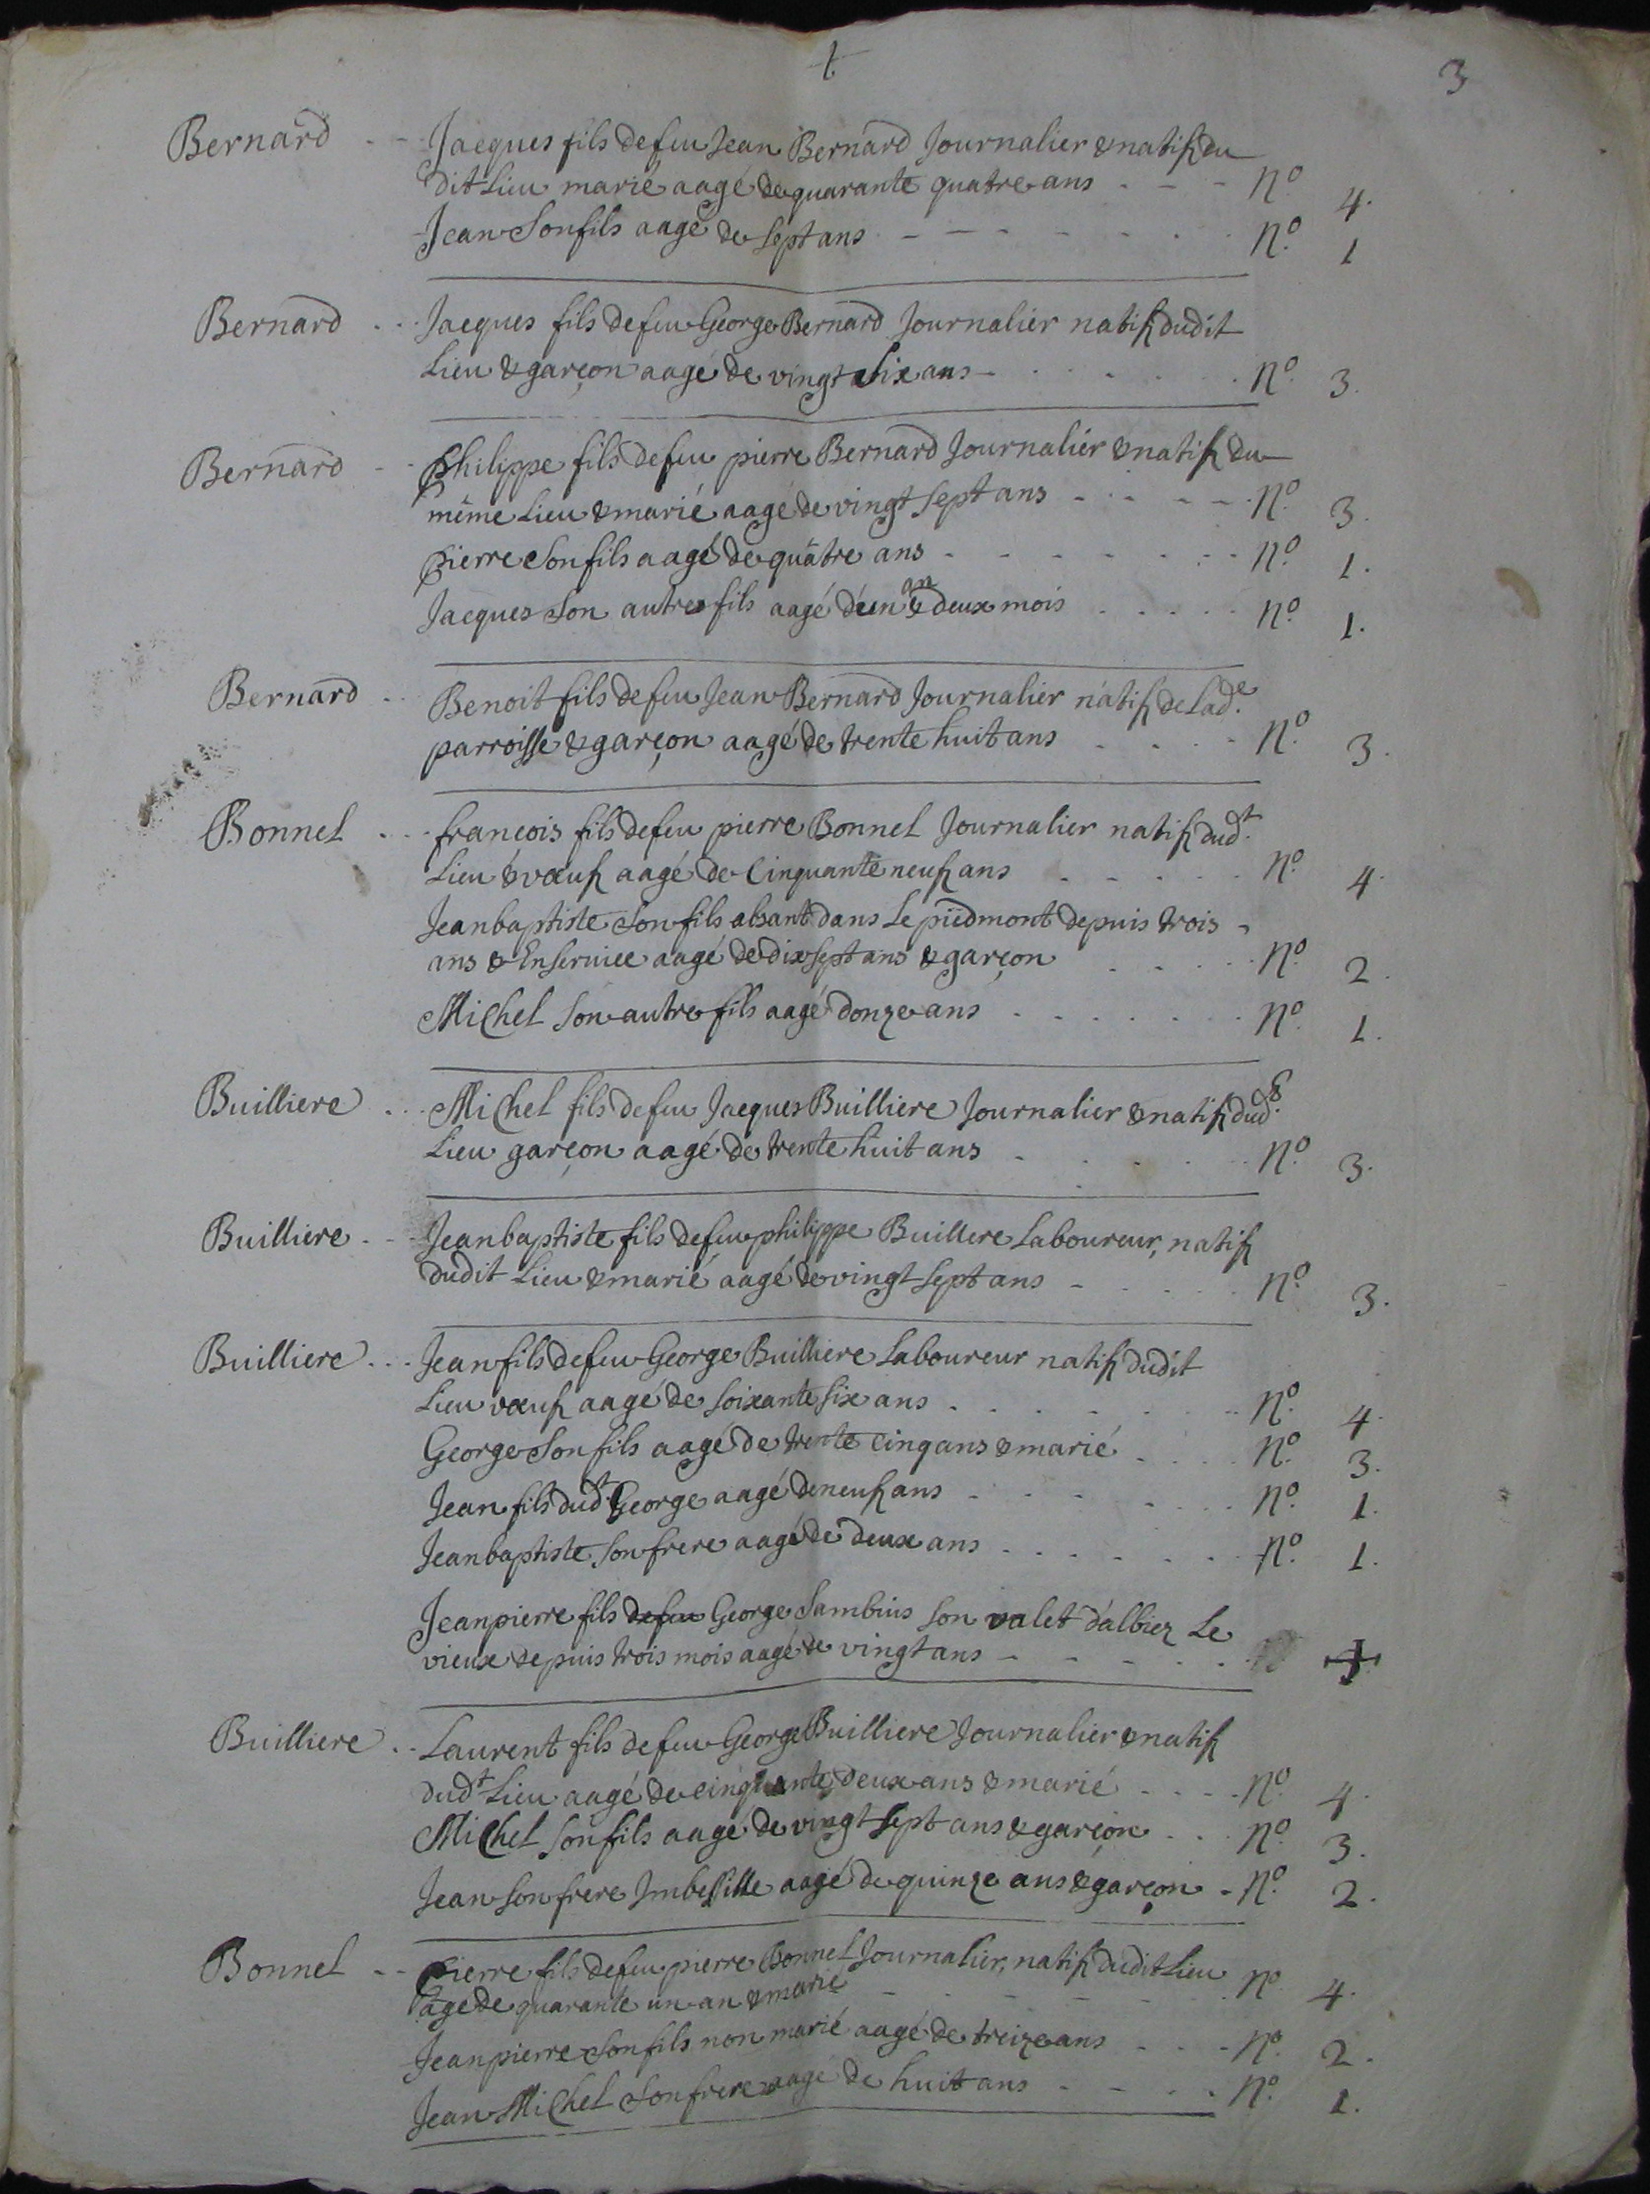 3
Bernard - - Jacques fils de feu Jean Bernard Journalier & natif du
dit Lieu marié aagé de quarante quatre ans - - - N.º 4.
Jean Son fils aagé de Sept ans - - - - - - N.º 1
Bernard . . . Jacques fils de feu George Bernard Journalier natif dudit
Lieu & garçon aagé de vingt Six ans - . . . . . N.º 3.
Bernard - - Philippe fils de feu pierre Bernard Journalier & natif du
même Lieu & marié aagé de vingt Sept ans - - - - - N.º 3.
pierre Son fils aagé de quatre ans - - - - - - - N.º 1.
Jacques Son autre fils aagé d'un an & deux mois . . . . . N.º 1.
Bernard . . Benoit fils de feu Jean Bernard Journalier natif de Lad.e
parroisse & garçon aagé de trente huit ans . . . . N.º 3.
Bonnel . . . francois fils de feu pierre Bonnel Journalier natif dud.t
Lieu & vœuf aagé de Cinquante neuf ans . . . . . N.º 4.
Jeanbaptiste Son fils absant dans Le piedmont depuis trois
ans & En Service aagé de dix Sept ans & garçon . . . . N.º 2.
Michel Son autre fils aagé donze ans . . . . . . . N.º 1.
Builliere . . . Michel fils de feu Jacques Builliere Journalier & natif dud.t
Lieu garçon aagé de trente huit ans . . . . . N.º 3.
Builliere . - - Jeanbaptiste fils de feu philippe Buillere Laboureur, natif
dudit Lieu & marié aagé de vingt Sept ans - . . . . N.º 3.
Builliere . . . Jean fils de feu George Builliere Laboureur natif dudit
Lieu vœuf aagé de Soixante Six ans . . . . . . . N.º 4.
George Son fils aagé de trente cinq ans & marié . . . . N.º 3.
Jean fils dud.t George aagé de neuf ans . . . . . . . N.º 1.
Jeanbaptiste Son frere aagé de deux ans . . . . . . . N.º 1.
Jeanpierre fils de feu George Sambuis Son valet d'albiez Le
vieux depuis trois mois aagé de vingt ans - - - - - .
Builliere . . Laurent fils de feu George Builliere Journalier & natif
dud.t Lieu aagé de cinquante deux ans & marié . . . . N.º 4.
Michel Son fils aagé de vingt Sept ans & garçon . . . N.º 3.
Jean Son frere Imbessille aagé de quinze ans & garçon . N.º 2.
Bonnel - - Pierre fils de feu pierre Bonnel Journalier, natif dudit Lieu N.º 4.
age de quarante un an & marié
Jeanpierre Son fils non marié aagé de treize ans . . . N.º 2.
Jean Michel Son frere aagé de huit ans - - - . N.º 1.